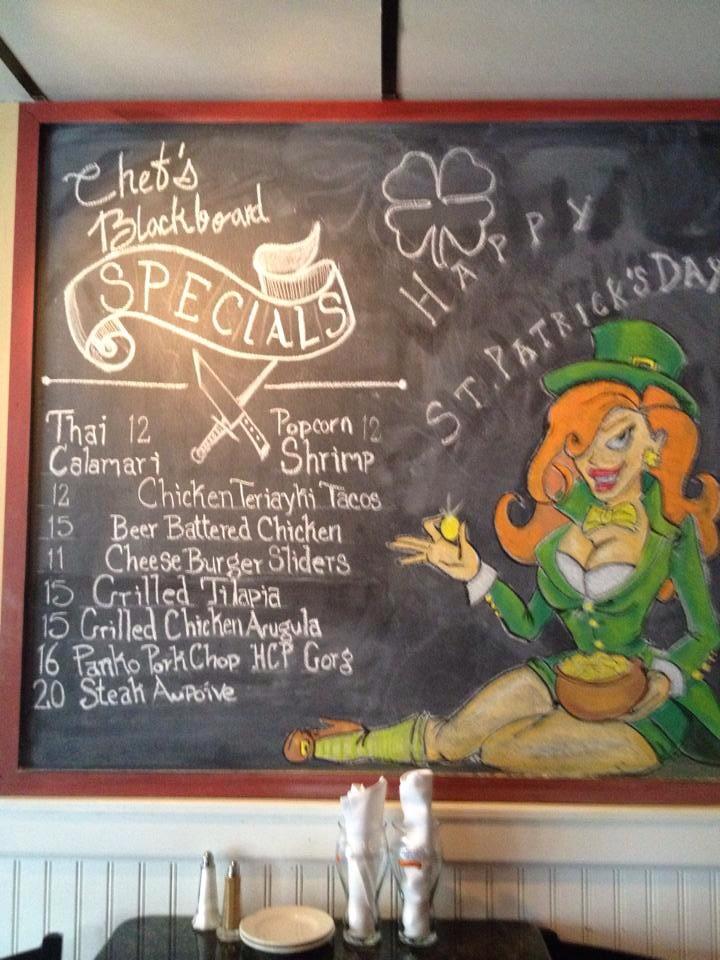 Chef's
Blackboard
SPECIALS
HAPPY
ST. PATRICK'S DAY
Thai 12
Calamari
Popcorn 12
Shrimp
12 Chicken Teriayki Tacos
15 Beer Battered Chicken
11 Cheese Burger Sliders
15 Grilled Tilapia
15 Grilled Chicken Arugula
16 Panko Pork Chop HCP Gorg
20 Steak Aupoive